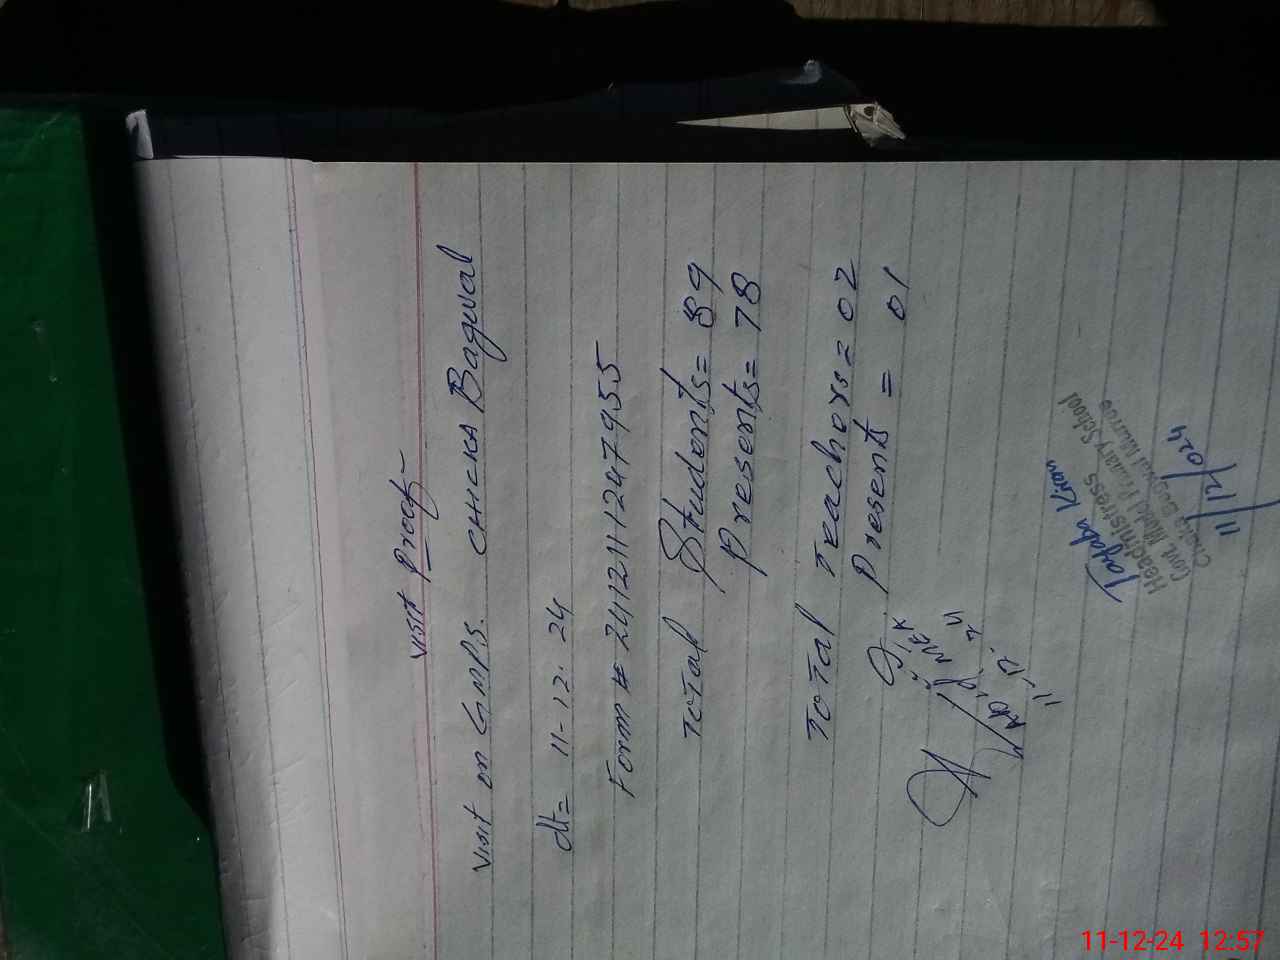 visit Proof
visit on G.M.P.S. CHICKA Bagwal
dt= 11-12.24
Form # 2412111247955
Total Students= 89
Presents= 78
Total Teachers= 02
Presents = 01
MEA
11-12.24
Tayaba Kiran
Headmistress
Govt. Model Primary School
Bagwal Murree
11/12/024
11-12-24 12:57